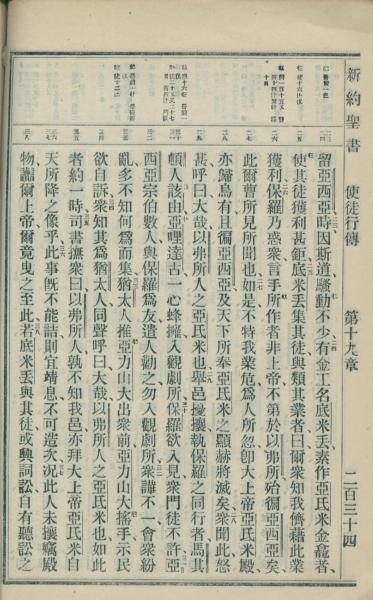 新約聖書 使徒行傳 第十九章 二百三十四
留亞西亞時因斯道騷動不少有金工名底米丟素作亞氐米金龕者
使其徒獲利甚鉅底米丟集其徒與類其業者曰爾衆知我儕藉此業
獲利保羅乃惑衆言手所作者非上帝不第於以弗所殆徧亞西亞矣
此爾曹所見所聞也如是不特我業危爲人所忽卽大上帝亞氐米殿
亦歸烏有且徧亞西亞及天下所奉亞氐米之顯赫將滅矣衆聞此怒
甚呼曰大哉以弗所人之亞氐米也舉邑擾攘執保羅之同行者馬其
頓人該由亞哩達古一心蜂擁入觀劇所保羅欲入見衆門徒不許亞
西亞宗伯數人與保羅爲友遣人勸之勿入觀劇所衆譁不一會衆紛
亂多不知何爲而集猶太人推亞力山大出衆前亞力山大搖手示民
欲自訴衆知其爲猶太人同聲呼曰大哉以弗所人之亞氐米也如此
者約一時司書撫衆曰以弗所人孰不知我邑亦拜大上帝亞氐米自
天所降之像乎此事旣不能詰則宜靖息不可造次況此人未攘竊殿
物讟爾上帝爾竟曳之至此若底米丟與其徒或興詞訟自有聽訟之